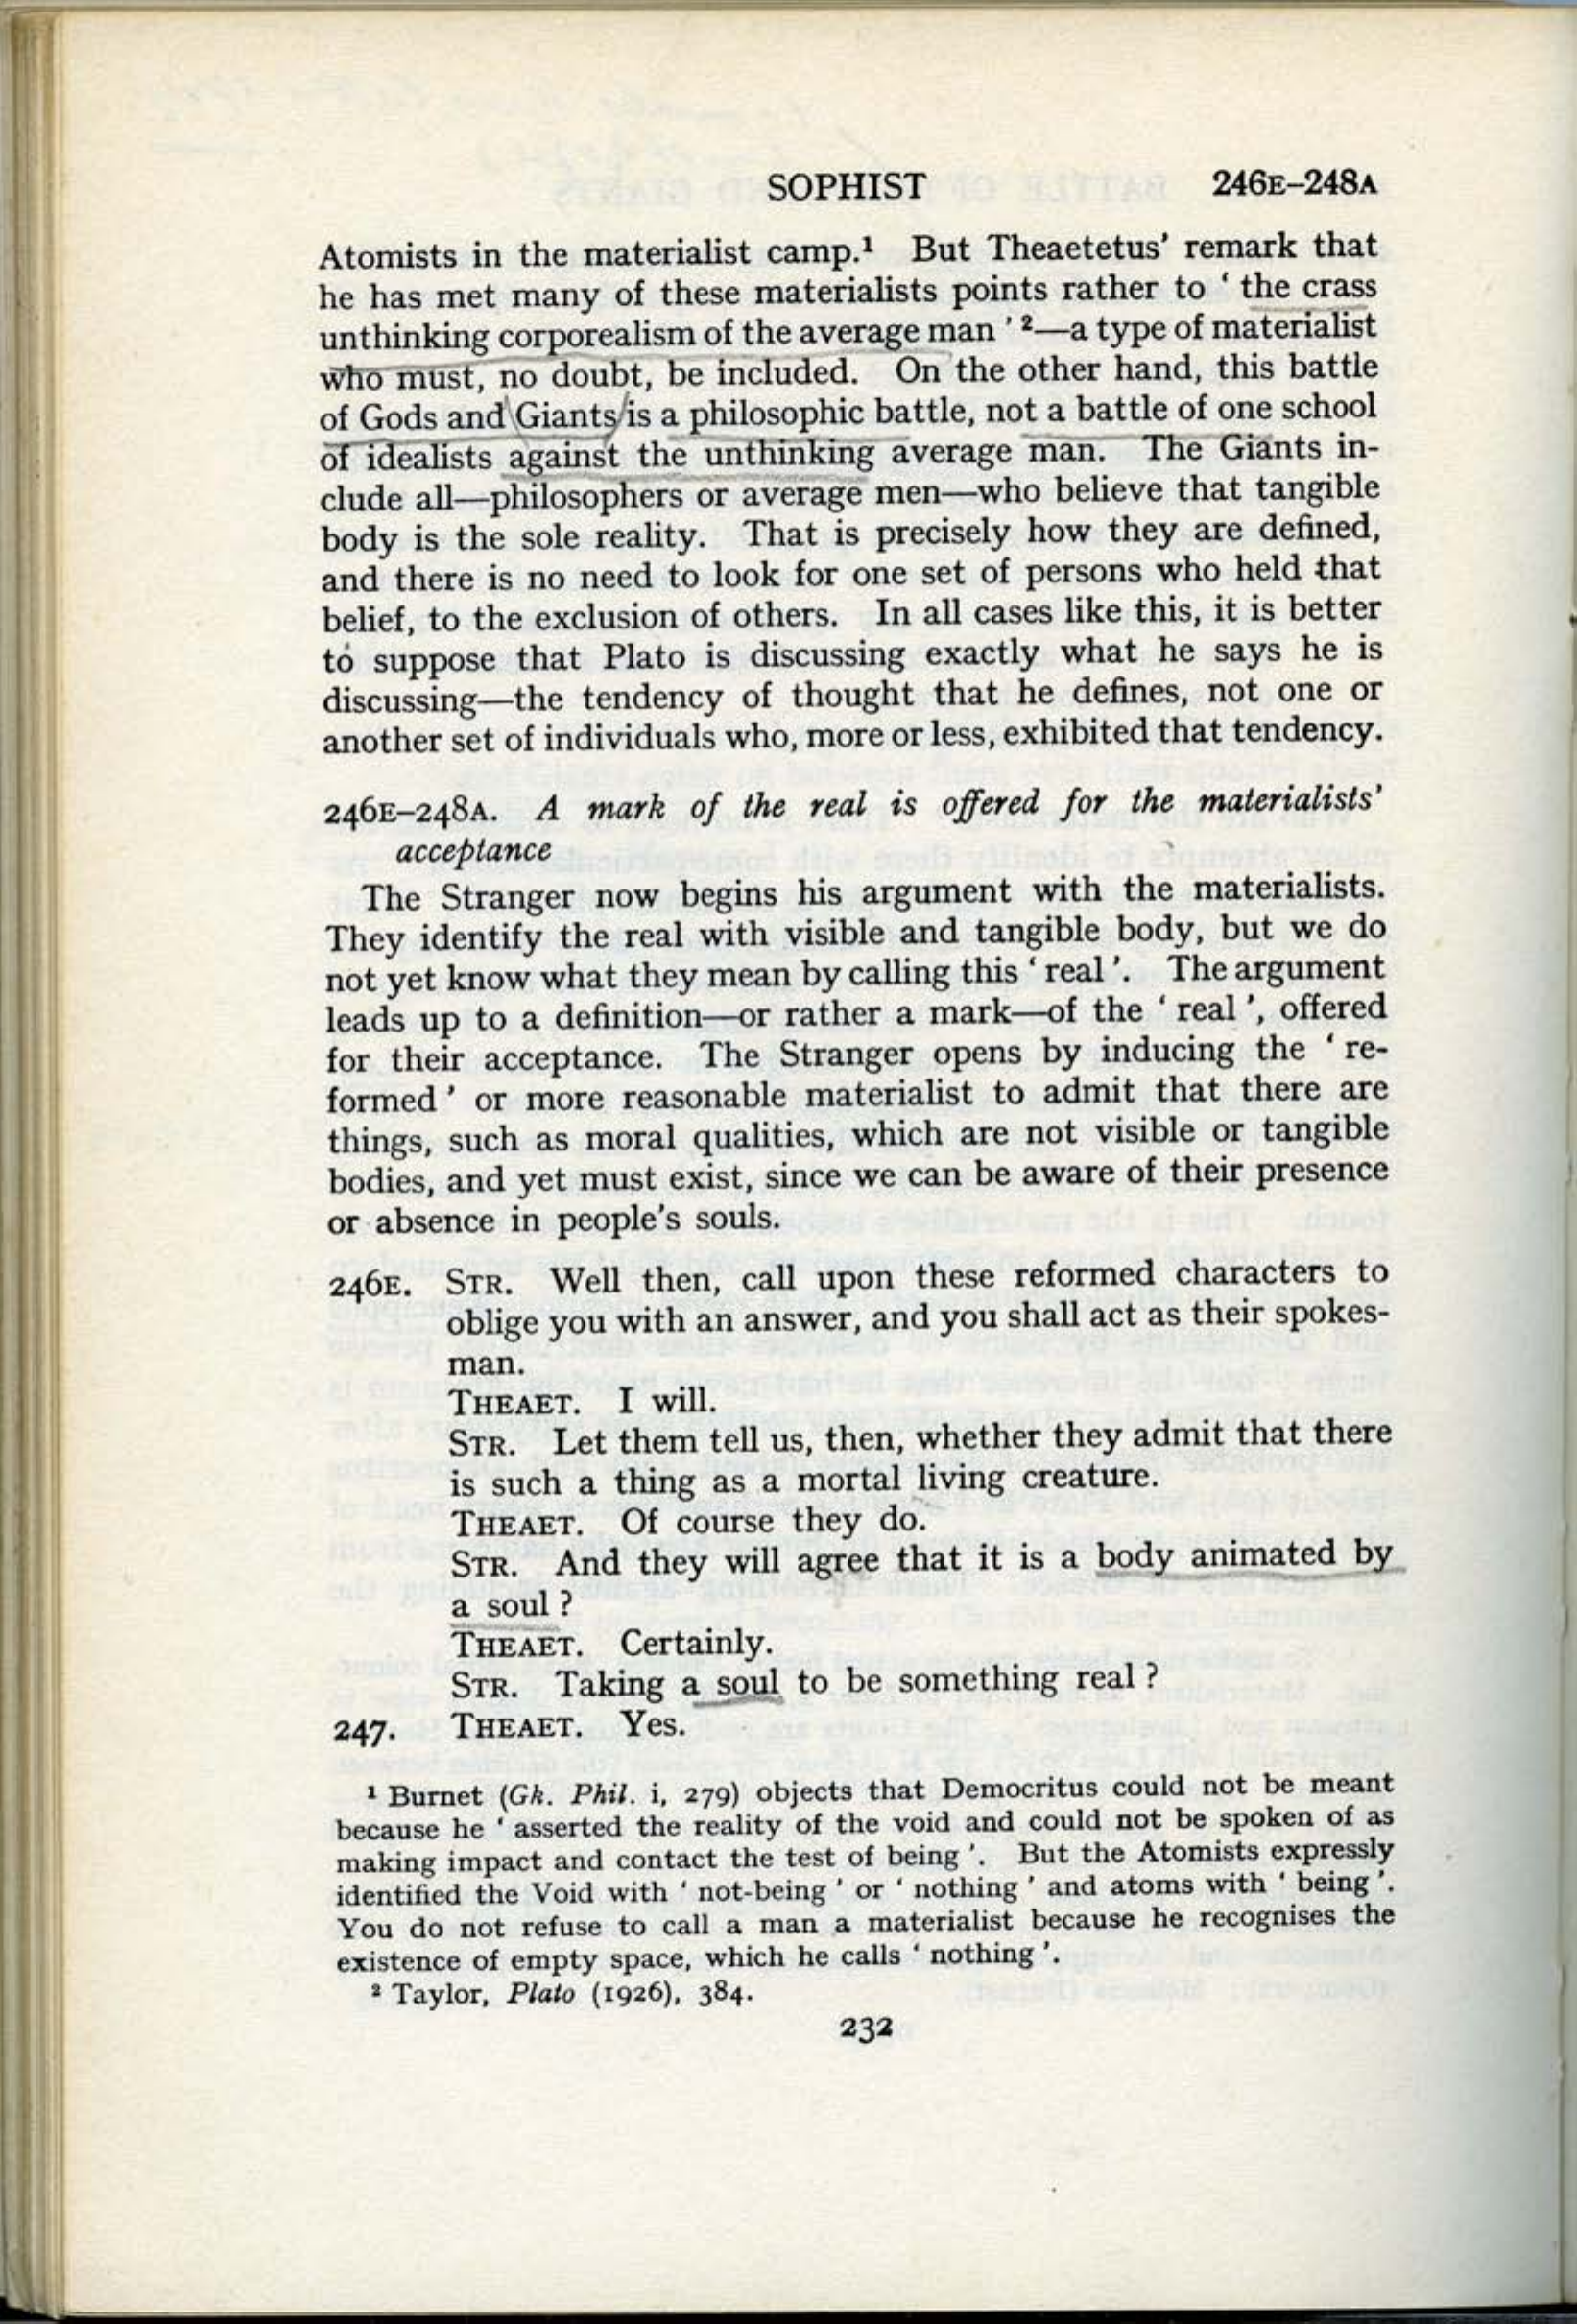 SOPHIST 246E–248A
Atomists in the materialist camp.¹ But Theaetetus' remark that
he has met many of these materialists points rather to ‘ the crass
unthinking corporealism of the average man ’ ²—a type of materialist
who must, no doubt, be included. On the other hand, this battle
of Gods and Giants is a philosophic battle, not a battle of one school
of idealists against the unthinking average man. The Giants in-
clude all—philosophers or average men—who believe that tangible
body is the sole reality. That is precisely how they are defined,
and there is no need to look for one set of persons who held that
belief, to the exclusion of others. In all cases like this, it is better
to suppose that Plato is discussing exactly what he says he is
discussing—the tendency of thought that he defines, not one or
another set of individuals who, more or less, exhibited that tendency.
246E–248A. A mark of the real is offered for the materialists'
acceptance
The Stranger now begins his argument with the materialists.
They identify the real with visible and tangible body, but we do
not yet know what they mean by calling this ‘ real ’. The argument
leads up to a definition—or rather a mark—of the ‘ real ’, offered
for their acceptance. The Stranger opens by inducing the ‘ re-
formed ’ or more reasonable materialist to admit that there are
things, such as moral qualities, which are not visible or tangible
bodies, and yet must exist, since we can be aware of their presence
or absence in people's souls.
246E. STR. Well then, call upon these reformed characters to
oblige you with an answer, and you shall act as their spokes-
man.
THEAET. I will.
STR. Let them tell us, then, whether they admit that there
is such a thing as a mortal living creature.
THEAET. Of course they do.
STR. And they will agree that it is a body animated by
a soul ?
THEAET. Certainly.
STR. Taking a soul to be something real ?
247. THEAET. Yes.
¹ Burnet (Gk. Phil. i, 279) objects that Democritus could not be meant
because he ‘ asserted the reality of the void and could not be spoken of as
making impact and contact the test of being ’. But the Atomists expressly
identified the Void with ‘ not-being ’ or ‘ nothing ’ and atoms with ‘ being ’.
You do not refuse to call a man a materialist because he recognises the
existence of empty space, which he calls ‘ nothing ’.
² Taylor, Plato (1926), 384.
232